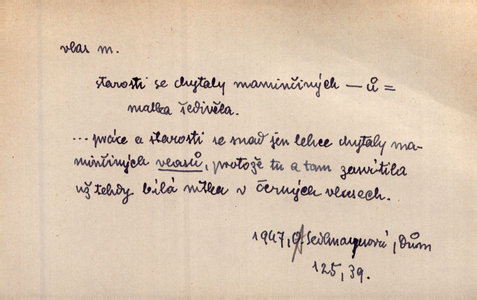 vlas m.
starosti se chytaly maminčiných — ů =
matka šedivěla.
... práce a starosti se snad jen lehce chytaly ma-
minčiných vlasů, protože tu a tam zasvítila
už tehdy bílá nitka v černých vlasech.
1947, Sedlmayerová, Dům
125, 39.